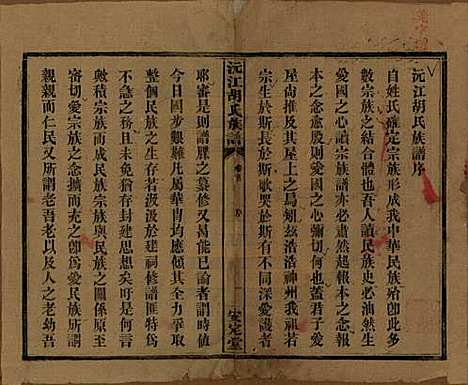 沅江胡氏族譜序
自姓氏確定宗族形成我中華民族殆卽此多
數宗族之結合體也吾人讀民族史必油然生
愛國之念閱宗族譜則必悠然起報本之念報
本之念愈殷則愛國之心彌切何也蓋君子愛
屋尚推及其屋上之烏矧茲浩浩神州我祖若
宗生於斯長於斯歌哭於斯有不同深愛護者
耶審是則譜牒之纂修又曷可已論者謂時値
今日國步艱難凡屬華胄均應傾其全力以謀
整個民族之生存若汲汲於建祠修譜匪特爲
不急之務且未免猶存封建思想不知民族者
積宗族而成民族與宗族之關係原至密切何
審切愛宗族之念充之卽爲愛民族之念所謂
親親而仁民又所謂老吾老以及人之老幼吾
沅江胡氏族譜
卷首
序
安定堂